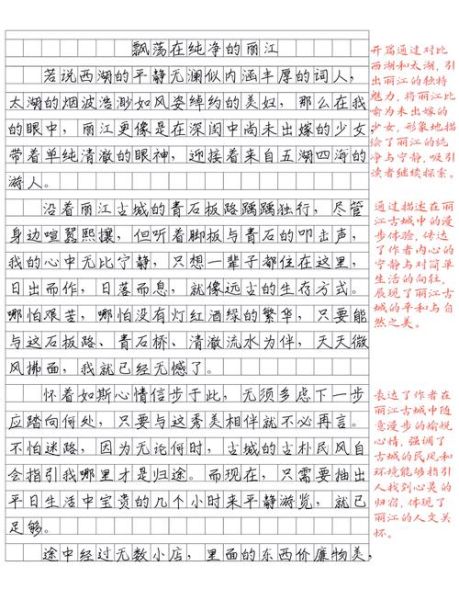 飘荡在纯净的丽江
若说西湖的平静无澜似内涵丰厚的词人，
太湖的烟波浩渺如风姿绰约的美妇，那么在我
的眼中，丽江更像是在深闺中尚未出嫁的少女，
带着单纯清澈的眼神，迎接着来自五湖四海的
游人。
沿着丽江古城的青石板路踽踽独行，尽管
身边喧嚣熙攘，但听着脚板与青石的叩击声，
我的心中无比宁静，只想一辈子都住在这里，
日出而作，日落而息，就像远古的生存方式。
哪怕艰苦，哪怕没有灯红酒绿的繁华，只要能
与这石板路、青石桥、清澈流水为伴，天天微
风拂面，我就已经无憾了。
怀着如斯心情信步于此，无须多虑下一步
应踏向何处，只要与这秀美相伴就不必再言。
不怕迷路，因为无论何时，古城的古朴民风自
会指引我哪里才是归途。而现在，只需要抽出
平日生活中宝贵的几个小时来平静游览，就已
足够。
途中经过无数小店，里面的东西价廉物美，
开篇通过对比
西湖和太湖，引
出丽江的独特
魅力，将丽江比
喻为未出嫁的
少女，形象地描
绘了丽江的纯
净与宁静，吸引
读者继续探索。
通过描述在丽
江古城中的漫
步体验，传达
了作者内心的
宁静与对简单
生活的向往，
展现了丽江古
城的平和与自
然之美。
表达了作者在
丽江古城中随
意漫步的愉悦
心情，强调了
古城的民风和
环境能够指引
人找到心灵的
归宿，体现了
丽江的人文关
怀。